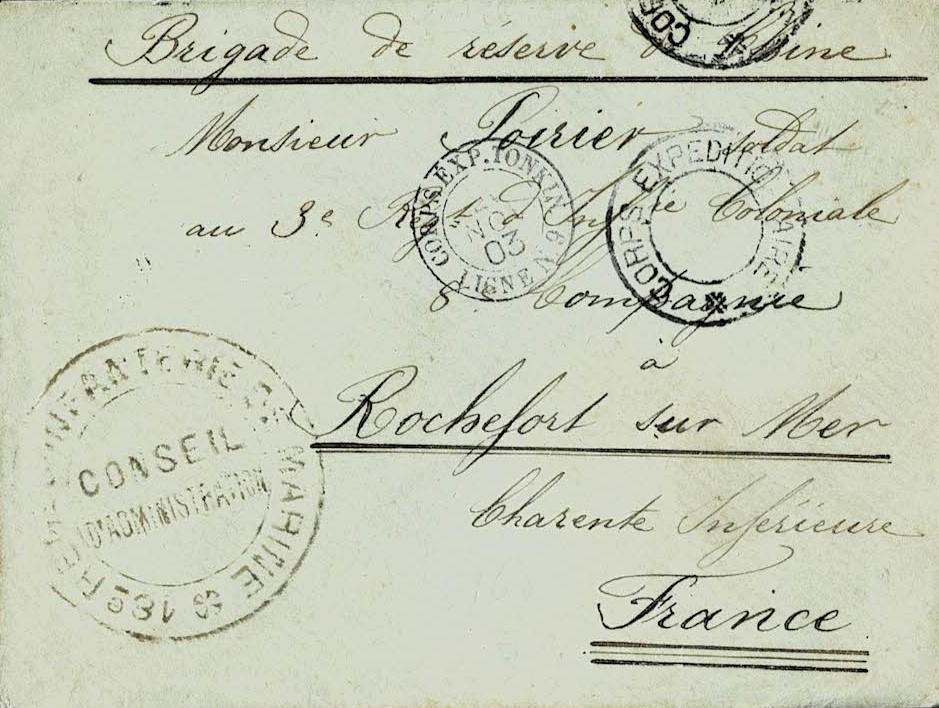 Brigade de réserve de Chine
COR
Monsieur Poirier soldat
au 3e Regt d'Infrie Coloniale
8e Compagnie
à
Rochefort sur Mer
Charente Inférieure
France
CORPS EXP. TONKIN
LIGNE N 6
NOV 00
CORPS EXPEDITIONNAIRE
18e REGT INFANTERIE DE MARINE
CONSEIL
D'ADMINISTRATION